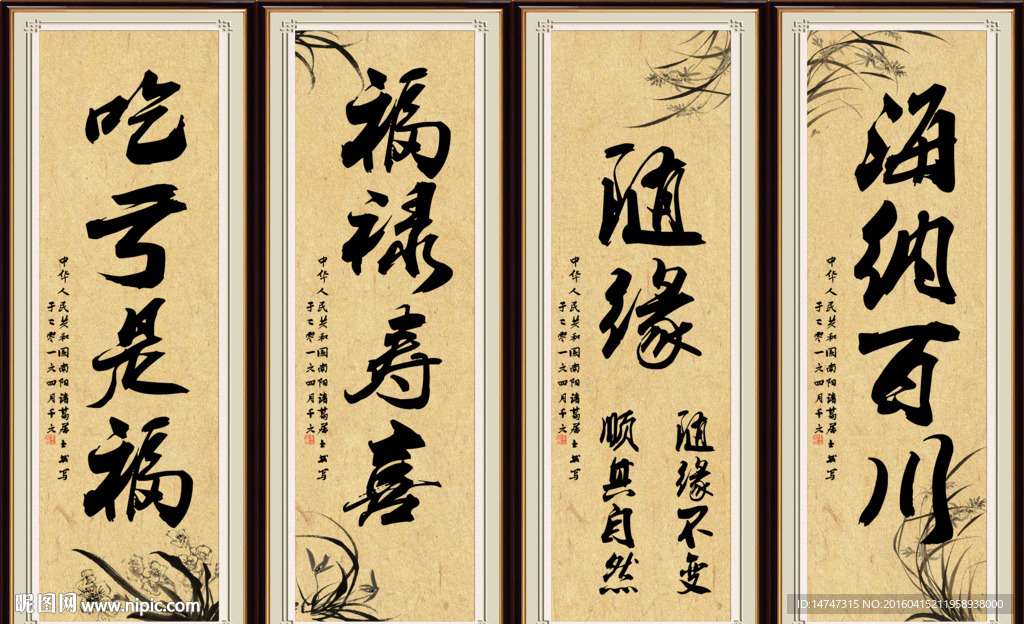 吃亏是福
中华人民共和国南阳诸葛居士书写
于二零一六四月
福禄寿喜
中华人民共和国南阳诸葛居士书写
于二零一六四月
随缘
随缘不变
顺其自然
中华人民共和国南阳诸葛居士书写
于二零一六四月
海纳百川
中华人民共和国南阳诸葛居士书写
于二零一六四月
昵图网 www.nipic.com
ID:14747315 NO:20160415211958938000